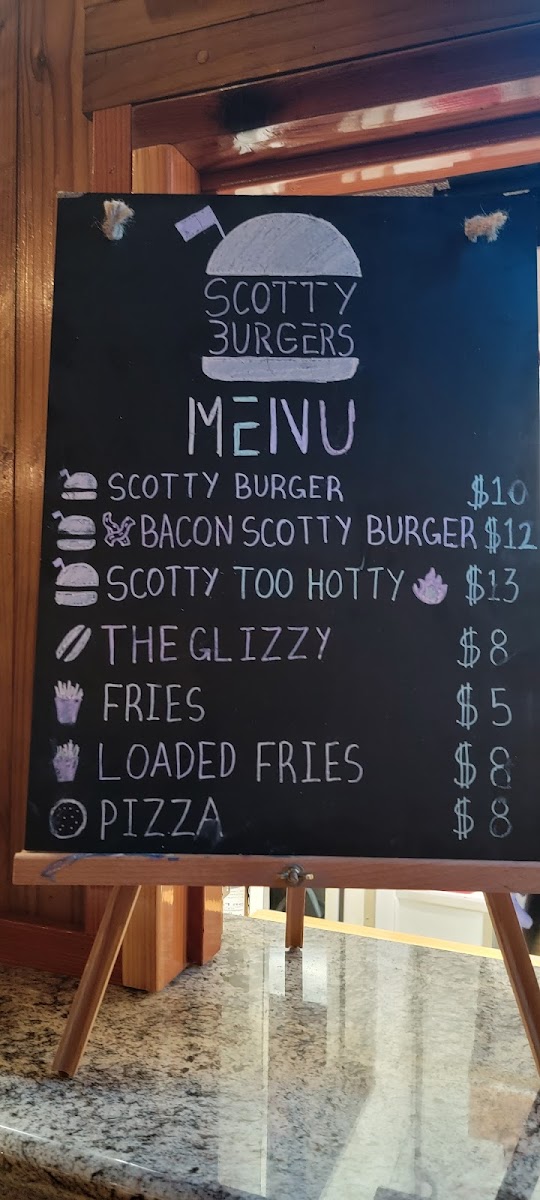 SCOTTY
BURGERS
MENU
SCOTTY BURGER $10
BACON SCOTTY BURGER $12
SCOTTY TOO HOTTY $13
THE GLIZZY $8
FRIES $5
LOADED FRIES $8
PIZZA $8